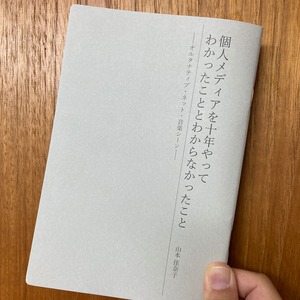 個人メディアを十年やって
わかったこととわからなかったこと
──オルタナティブ・ネット・音楽シーン──
山本佳奈子